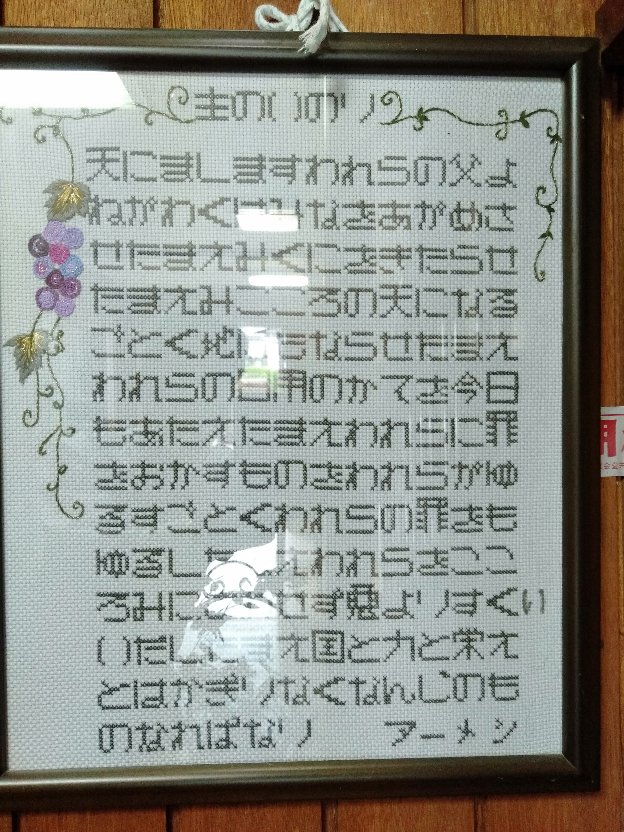 主のいのり
天にましますわれらの父よ
ねがわくはみなをあがめさ
せたまえみくにをきたらせ
たまえみこころの天になる
ごとく地にもならせたまえ
われらの日用のかてを今日
もあたえたまえわれらに罪
をおかすものをわれらがゆ
るすごとくわれらの罪をも
ゆるしたまえわれらをここ
ろみにあわせず悪よりすくい
いだしたまえ国と力と栄え
とはかぎりなくなんじのも
のなればなり アーメン